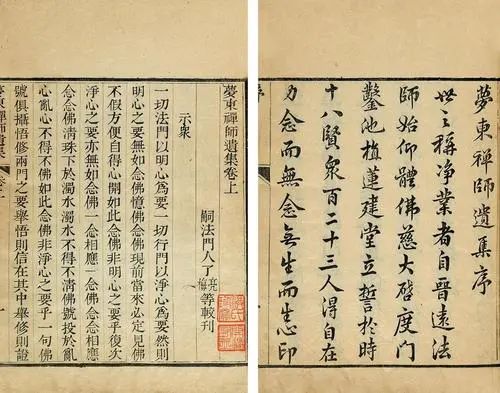 夢東禪師遺集序
世之稱淨業者自晉遠法
師始仰體佛慈大啓度門
鑿池植蓮建堂立誓於時
十八賢衆百二十三人得自在
力念而無念无生而忘印
序
夢東禪師遺集卷上
嗣法門人了亮等較刊
示衆
一切法門以明心爲要一切行門以淨心爲要然則
明心之要無如念佛憶佛念佛現前當來必定見佛
不假方便自得心開如此念佛非明心之要乎復次
淨心之要亦無如念佛一念相應一念佛念念相應
念念佛清珠下於濁水濁水不得不清佛號投於亂
心亂心不得不佛如此念佛非淨心之要乎一句佛
號俱攝悟修兩門之要舉悟則信在其中舉修則證
夢東禪師遺集 卷上 一